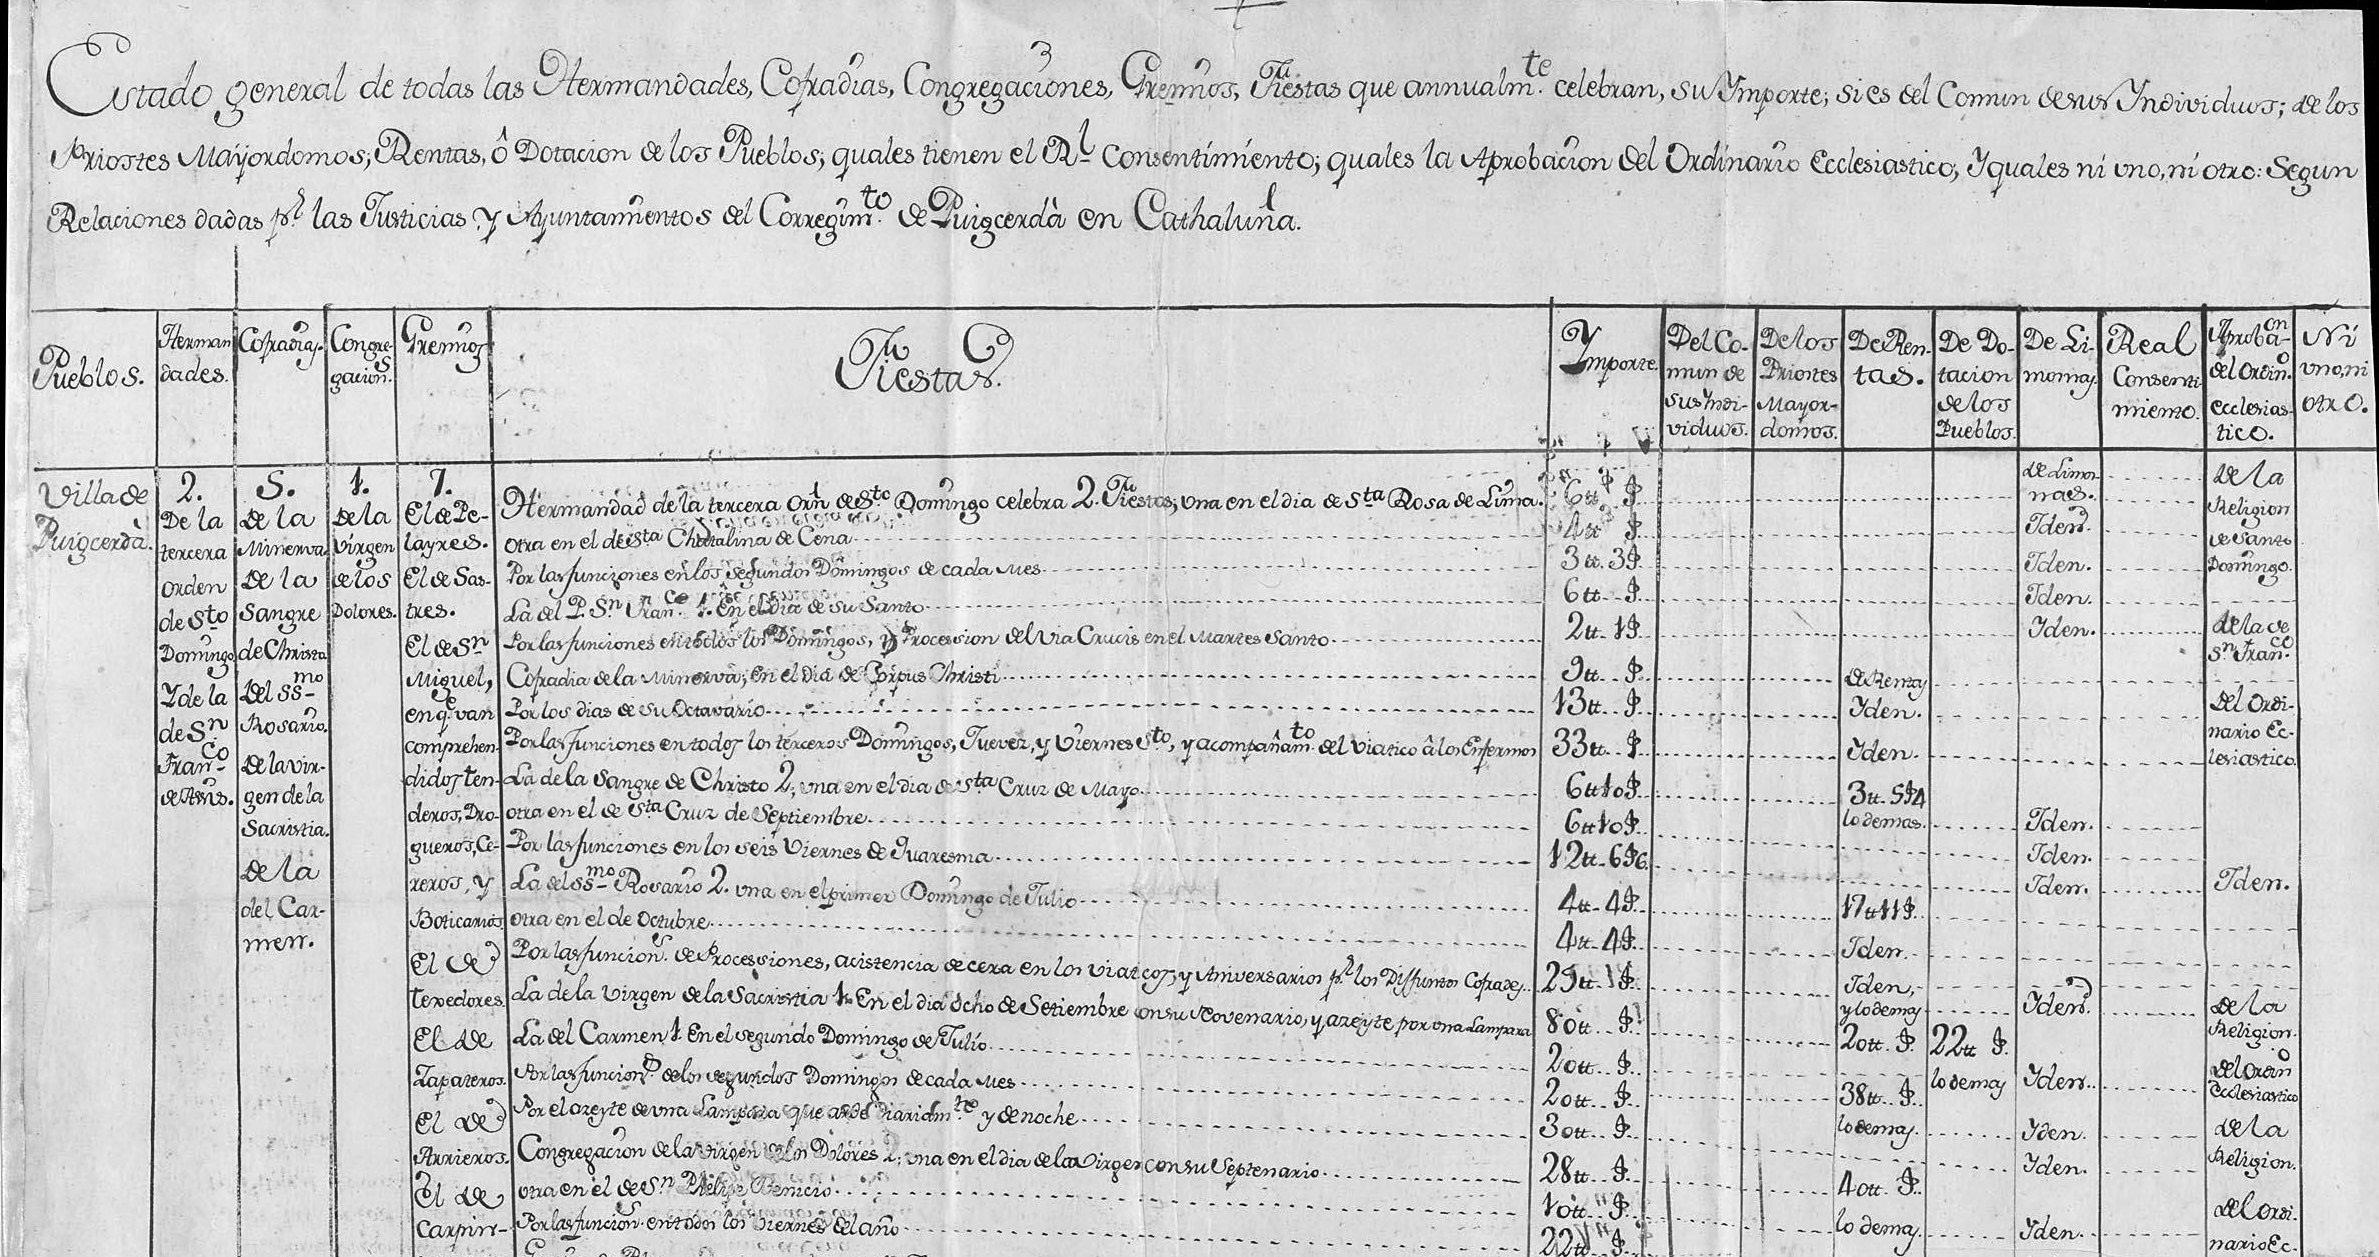 Estado general de todas las Hermandades, Cofradias, Congregaciones, Gremios, Fiestas que annualm.te celebran, su Ymporte; si es del Comun de sus Yndividuos; de los
Priostes Mayordomos; Rentas, ô Dotacion de los Pueblos; quales tienen el R.l Consentimiento; quales la Aprobacion del Ordinario Ecclesiastico; y quales ni uno, ni otro: Segun
Relaciones dadas p.r las Justicias y Ayuntamientos del Corregim.to de Puigcerdà en Cathaluña.
Pueblos.
Herman
dades.
Cofradias.
Congre-
gacion.s
Gremios
Fiestas.
Ymporte.
Del Co-
mun de
sus Yndi-
viduos.
De los
Priostes
Mayor-
domos.
De Ren-
tas.
De Do-
tacion
de los
Pueblos.
De Li-
mosnas.
Real
Consenti-
miento.
Aproba-on
del Ordin.o
ecclesias-
tico.
Ni
uno, ni
otro.
Villa de
Puigcerdà.
2.
De la
tercera
orden
de Sto
Domingo
Y de la
de Sn
Fran.co
de Asis.
5.
De la
Minerva.
De la
Sangre
de Christo
Del SS.mo
Rosario.
De la Vir-
gen de la
Sacristia.
de la
del Car-
men.
1.
De la
Virgen
de los
Dolores.
7.
El de Pe-
layres.
El de Sas-
tres.
El de Sn
Miguel,
en q.e van
comprehen-
didos ten-
deros, Dro-
gueros, Ce-
reros, y
Boticarios
El de
texedores.
El de
Zapateros.
El de
Arrieros.
El de
Carpin-
Hermandad de la tercera Orn de Sto Domingo celebra 2. Fiestas; una en el dia de Sta Rosa de Lima.
otra en el de Sta Chatalina de Cena
Por las funciones en los segundos Domingos de cada mes
La del P. Sn Fran.co 1. En el dia de su Santo
Por las funciones en todos los Domingos, y Procession del Via Crucis en el Martes Santo
Cofradia de la Minerva; en el dia de Corpus Christi
Por los dias de su Octavario
Por las funciones en todos los terceros Domingos, Jueves, y Viernes Sto, y acompañam.to del Viatico â los Enfermos
La de la Sangre de Christo 2; una en el dia de Sta Cruz de Mayo
otra en el de Sta Cruz de Septiembre
Por las funciones en los seis Viernes de Quaresma
La del SS.mo Rosario 2. una en el primer Domingo de Julio
otra en el de Octubre
Por las funcion.s de Processiones, acistencia de cera en los Viaticos, y Aniversarios p.r los Diffuntos Cofrades
La de la Virgen de la Sacristia 1. En el dia ocho de Setiembre con su Novenario, y azeyte por una Lampara
La del Carmen 1. En el segundo Domingo de Julio
Por las funcion.s de los segundos Domingos de cada mes
Por el azeyte de una Lampara que arde diariam.te y de noche
Congregacion de la Virgen de los Dolores 2; una en el dia de la Virgen con su Septenario
otra en el de Sn Phelipe Benicio
Por las funcion.s en todos los Viernes del año
6tt $
4tt $
3tt. 3$
6tt $
2tt. 1$
9tt $
13tt $
33tt $
6tt 10$
6tt 10$
12tt 6$6
4tt 4$
4tt 4$
25tt 1$
80tt $
20tt $
20tt $
30tt $
28tt $
10tt $
22tt $
de Rentas
Yden.
Yden.
3tt 5$4
lo demas.
17tt 11$
Iden.
Iden,
y lo demas
20tt $
38tt $
lo demas.
40tt $
lo demas.
22tt $
lo demas
de Limos-
nas.
Iden.
Iden.
Iden.
Iden.
Iden.
Iden.
Iden.
Iden.
Iden.
Iden.
Iden.
Iden.
de la
Religion
de Santo
Domingo.
de la de
Sn Fran.co
Del Ordi-
nario Ec-
lesiastico.
Iden.
de la
Religion.
del Ordin.o
Ecclesiastico
de la
Religion.
del Ordi-
nario Ec-